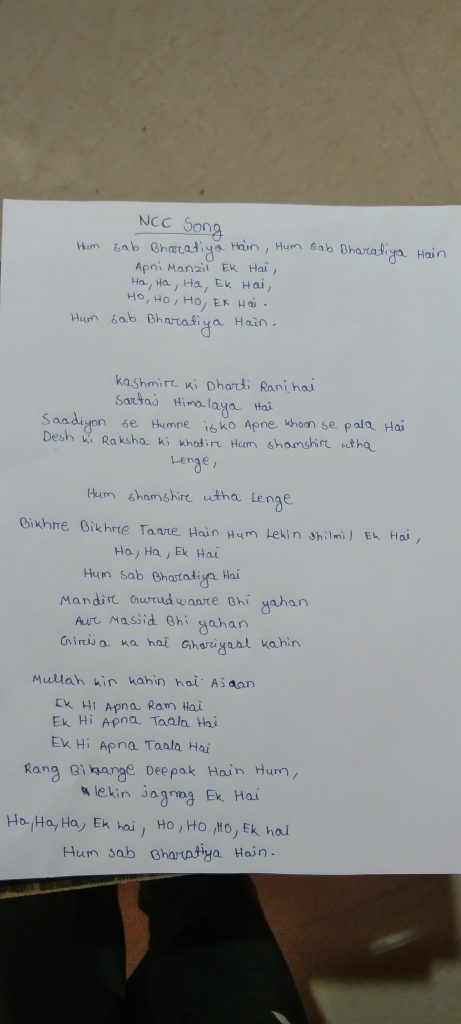 NCC Song
Hum Sab Bharatiya Hain, Hum Sab Bharatiya Hain
Apni Manzil Ek Hai,
Ha, Ha, Ha, Ek Hai,
Ho, Ho, Ho, Ek Hai.
Hum Sab Bharatiya Hain.
Kashmir Ki Dharti Rani hai
Sartaj Himalaya Hai
Saadiyon se Humne isko Apne Khoon se pala Hai
Desh ki Raksha ki khatir Hum shamshir utha
Lenge,
Hum shamshir utha Lenge
Bikhre Bikhre Taare Hain Hum Lekin Jhilmil Ek Hai,
Ha, Ha, Ek Hai
Hum Sab Bharatiya Hai
Mandir Gurudwaare Bhi yahan
Aur Masjid Bhi yahan
Girija ka hai Ghariyaal kahin
Mullah kin kahin hai Ajaan
Ek Hi Apna Ram Hai
Ek Hi Apna Taala Hai
Ek Hi Apna Taala Hai
Rang Birange Deepak Hain Hum,
lekin jagmag Ek Hai
Ha, Ha, Ha, Ek hai, Ho, Ho, Ho, Ek hai
Hum Sab Bharatiya Hain.